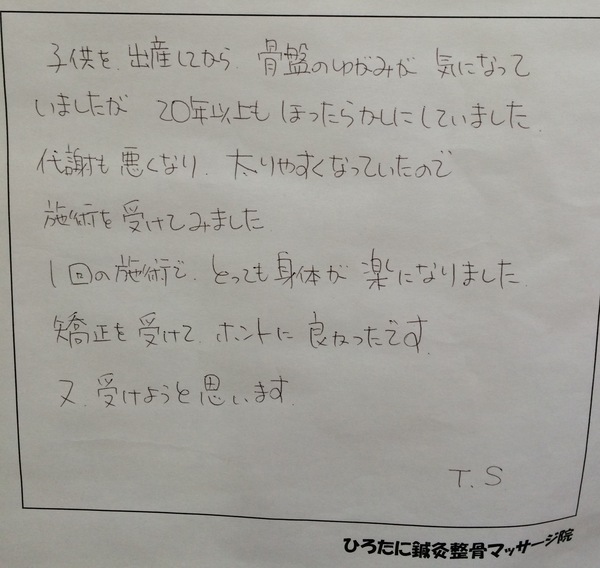 子供を、出産してから、骨盤のゆがみが 気になって
いましたが 20年以上も ほったらかしにしていました、
代謝も 悪くなり、太りやすくなっていたので
施術を 受けてみました
1回の施術で、とっても 身体が 楽になりました
矯正を 受けて、ホントに 良かったです。
又、受けようと思います。
T.S
ひろたに鍼灸整骨マッサージ院